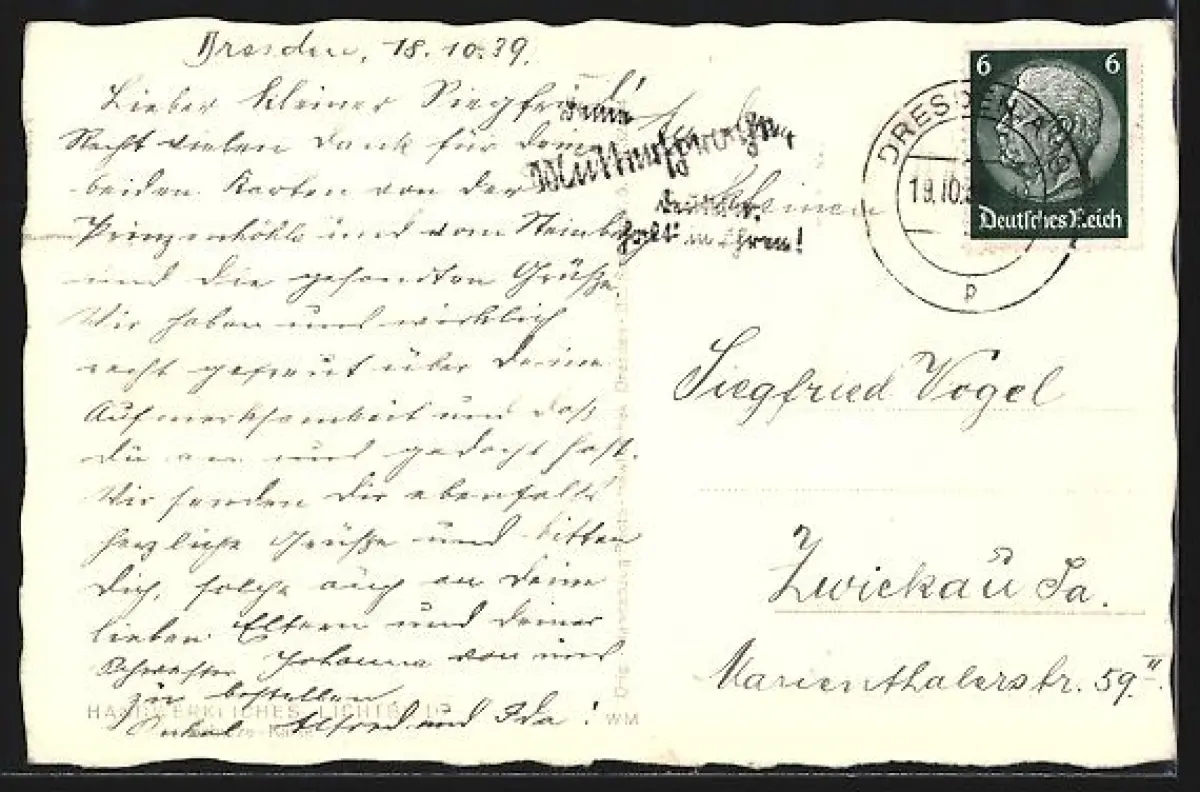 Dresden, 18.10.39.
Lieber kleiner Siegfried!
Recht vielen Dank für Deine
beiden Karten von der
Prinzenhöhle und vom Steinberg
und die gesandten Grüße.
Wir haben uns wirklich
recht gefreut über Deine
Aufmerksamkeit und daß
Du an uns gedacht hast.
Wir senden Dir ebenfalls
herzliche Grüße und bitten
Dich, solche auch an Deine
lieben Eltern und Deiner
Schwester Johanna von uns
zu bestellen
Onkel Alfred und Ida!
HANDWERKLICHES LICHTBILD
WM
Deine
Muttersprache,
Deutscher,
halt in Ehren!
Kleinen
DRESDEN
19.10.
p
6 6
Deutsches Reich
Siegfried Vogel
Zwickau Sa.
Marienthalerstr. 59 II.